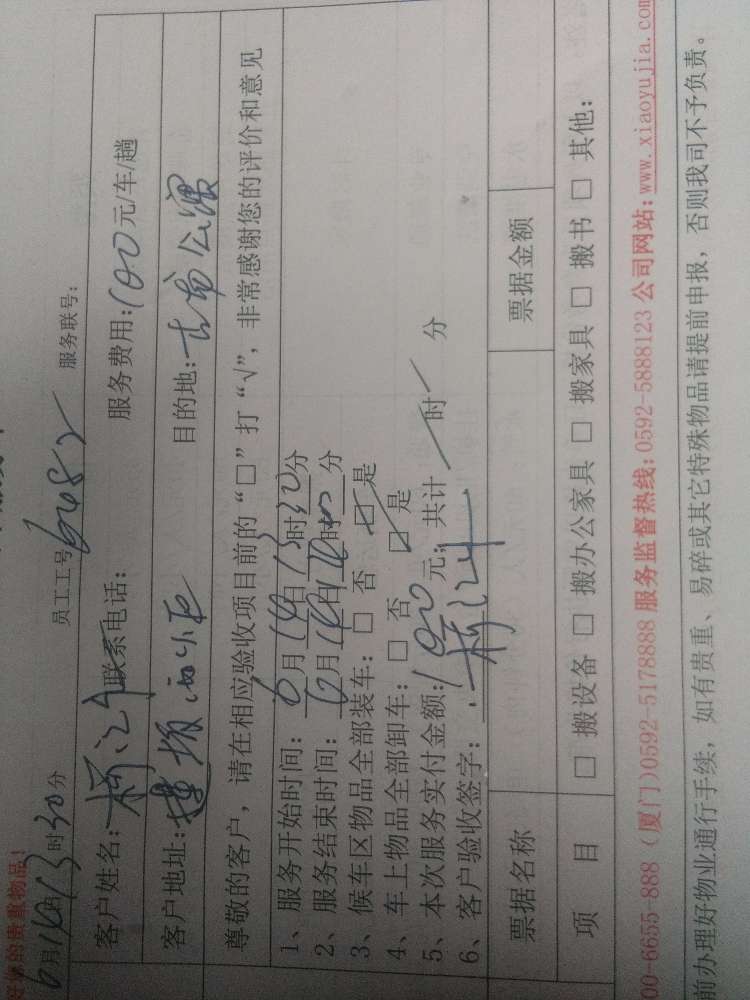 好您的贵重物品!
6月14日13时30分 员工工号6482 服务联号:
客户姓名: 联系电话: 服务费用:100元/车/趟
客户地址: 目的地:
尊敬的客户,请在相应验收项目前的“□”打“√”,非常感谢您的评价和意见
1、服务开始时间: 6月14日13时30分
2、服务结束时间: 6月14日 时 分
3、候车区物品全部装车: □ 否 ☑ 是
4、车上物品全部卸车: □ 否 ☑ 是
5、本次服务实付金额: 100元; 共计 时 分
6、客户验收签字:
票据名称 票据金额
项 目 □ 搬设备 □ 搬办公家具 □ 搬家具 □ 搬书 □ 其他:
00-6655-888 (厦门)0592-5178888 服务监督热线:0592-5888123 公司网站:www.xiaoyujia.com
前办理好物业通行手续, 如有贵重、易碎或其它特殊物品请提前申报, 否则我司不予负责。